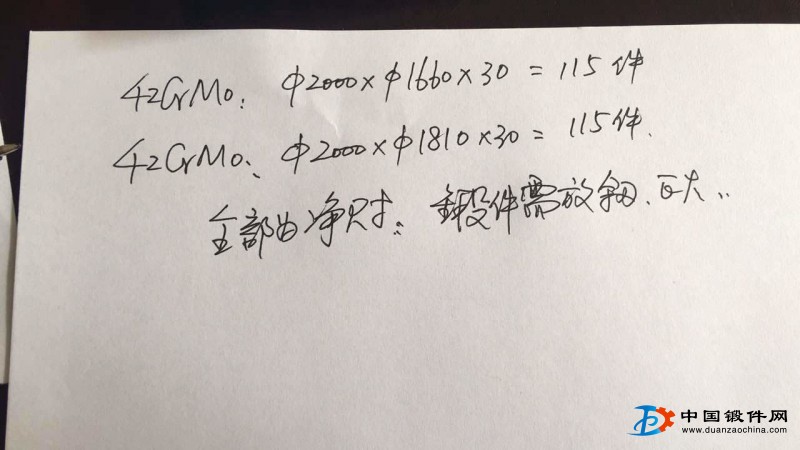 42CrMo: φ2000×φ1660×30=115件
42CrMo、φ2000×φ1810×30=115件.
全部由净尺寸: 锻件需放余、正火..
中国锻件网
www.duanzaochina.com